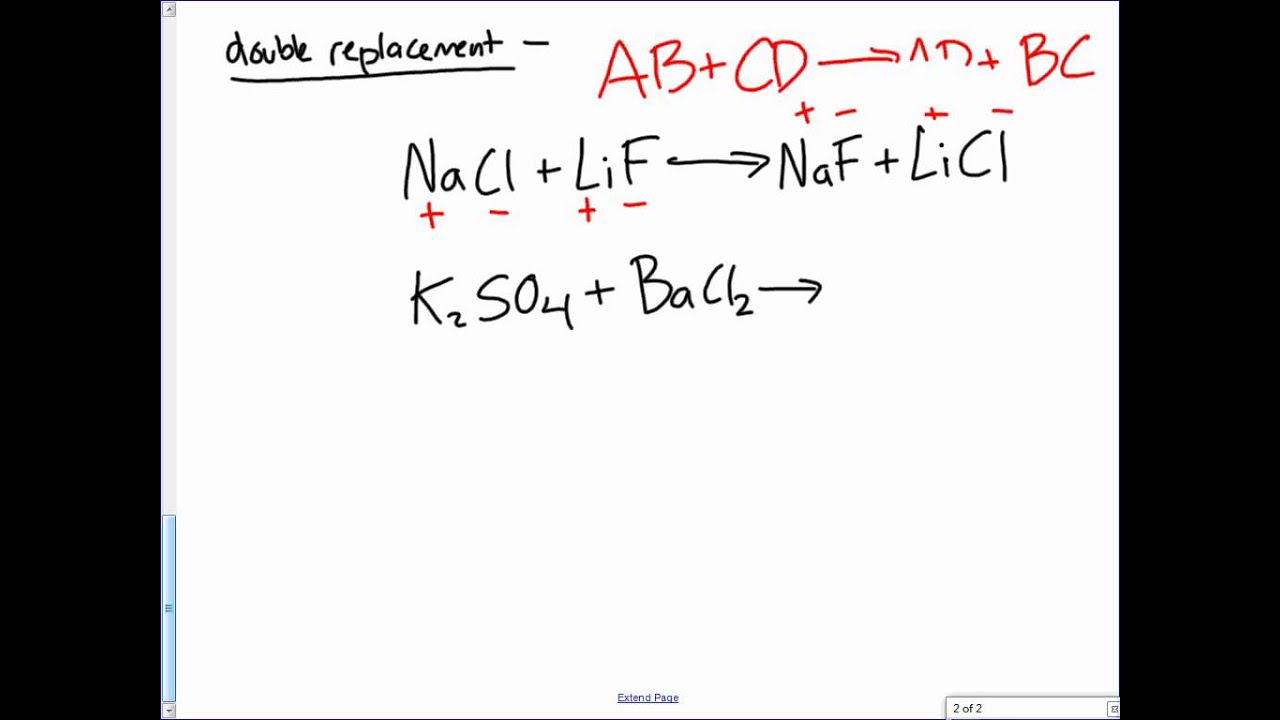 double replacement – AB + CD → AD + BC
+ - + -
NaCl + LiF → NaF + LiCl
+ - + -
K₂SO₄ + BaCl₂ →
Extend Page
2 of 2